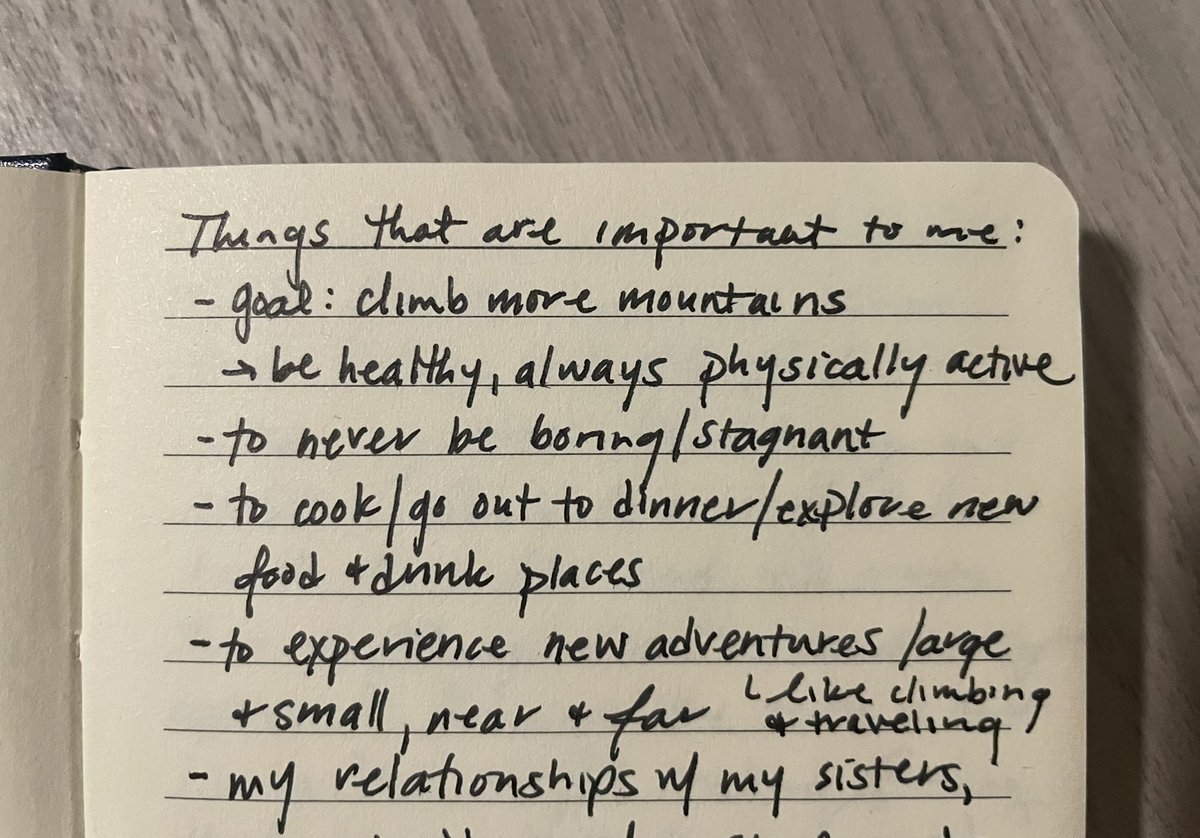 Things that are important to me:
- goal: climb more mountains
→ be healthy, always physically active
- to never be boring/stagnant
- to cook/go out to dinner/explore new
food + drink places
- to experience new adventures large
+ small, near + far
↳ like climbing
+ traveling
- my relationships w/ my sisters,